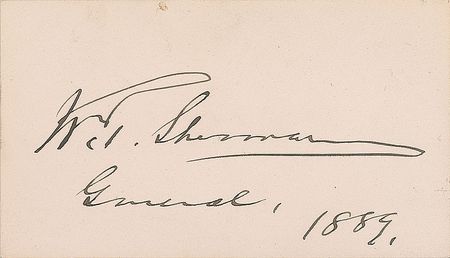 W. T. Sherman
General,
1889.